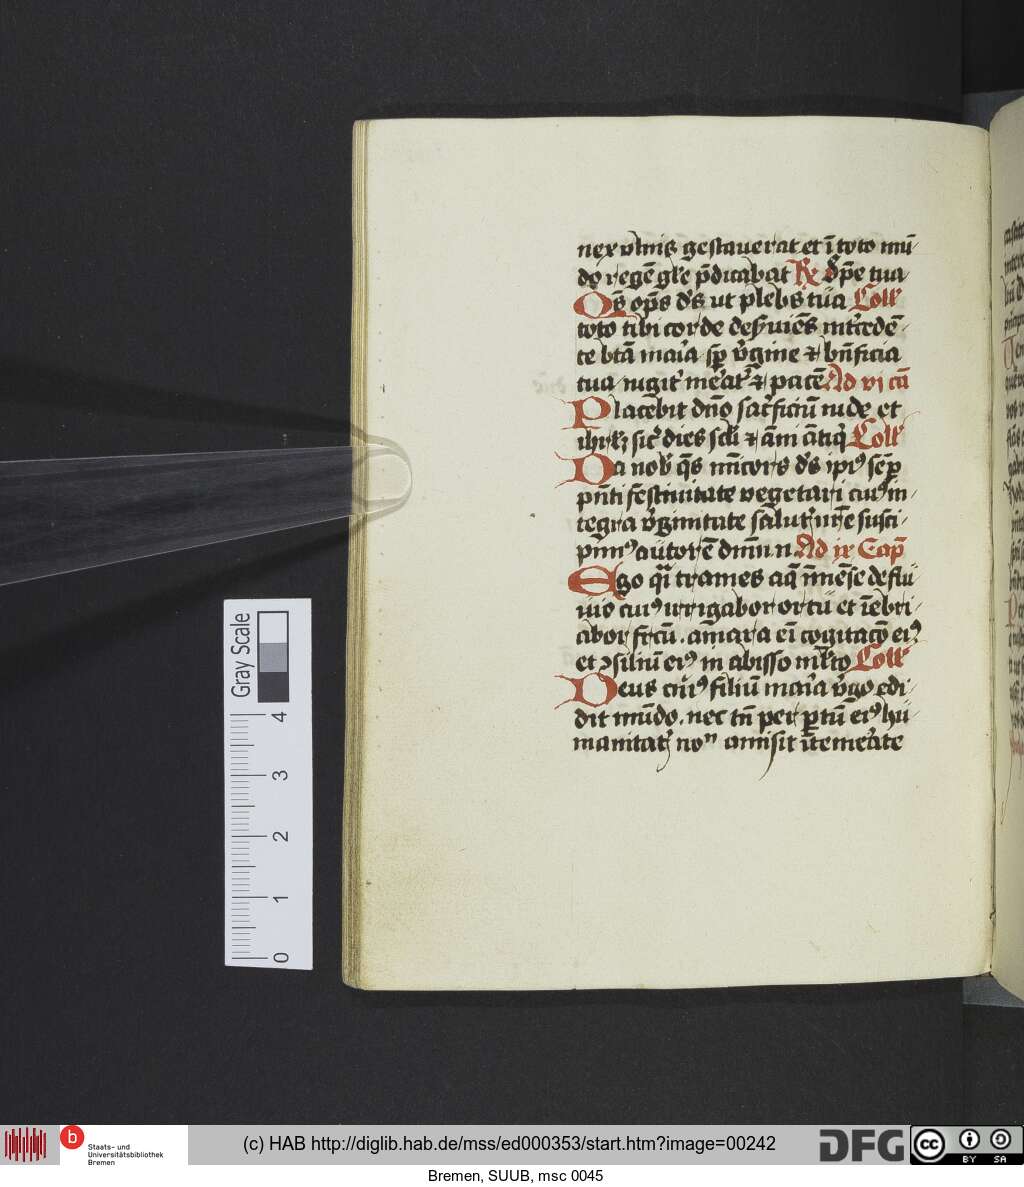 nex vlnis gestauerat et ī toto mū
do regē glē p̄dicabat R͞x dp̄e tua
Q̄s op̄s ds̄ ut plebs tua Coll'
toto tibi corde deseruiēs int'cedē
te btā maīa sp̄ v'gine & bn̄ficia
tua iugit' me'at' & pacē Ad vi cā
Placebit dn̄o sac'ficiū iude et
ihrl'z sic' dies scl'i & ām ātiq̄ Coll'
Da nob' q̄s mīcors ds̄ ipi9 semp
pn̄ti festiuitate vegetari cui9 in
tegra v'ginitate salut' nr̄e susci
pim9 autorē dnm̄ n Ad ix Cap̄
Ego q̄i trames aq̄ īmēse de flu
uio cui9 irrigabor ortū et īebri
abor frcū . am̄ara ei cogitaco ei9
et ꝯsiliū ei9 in abisso ml'to Coll'
Deus cui9 filiū maīa v'go edi
dit mūdo . nec tn̄ per ptū ei9 hu
manitat' non amisit īteme'ate
Gray Scale
0 1 2 3 4
b
Staats- und
Universitätsbibliothek
Bremen
(c) HAB http://diglib.hab.de/mss/ed000353/start.htm?image=00242
DFG
cc BY SA
Bremen, SUUB, msc 0045